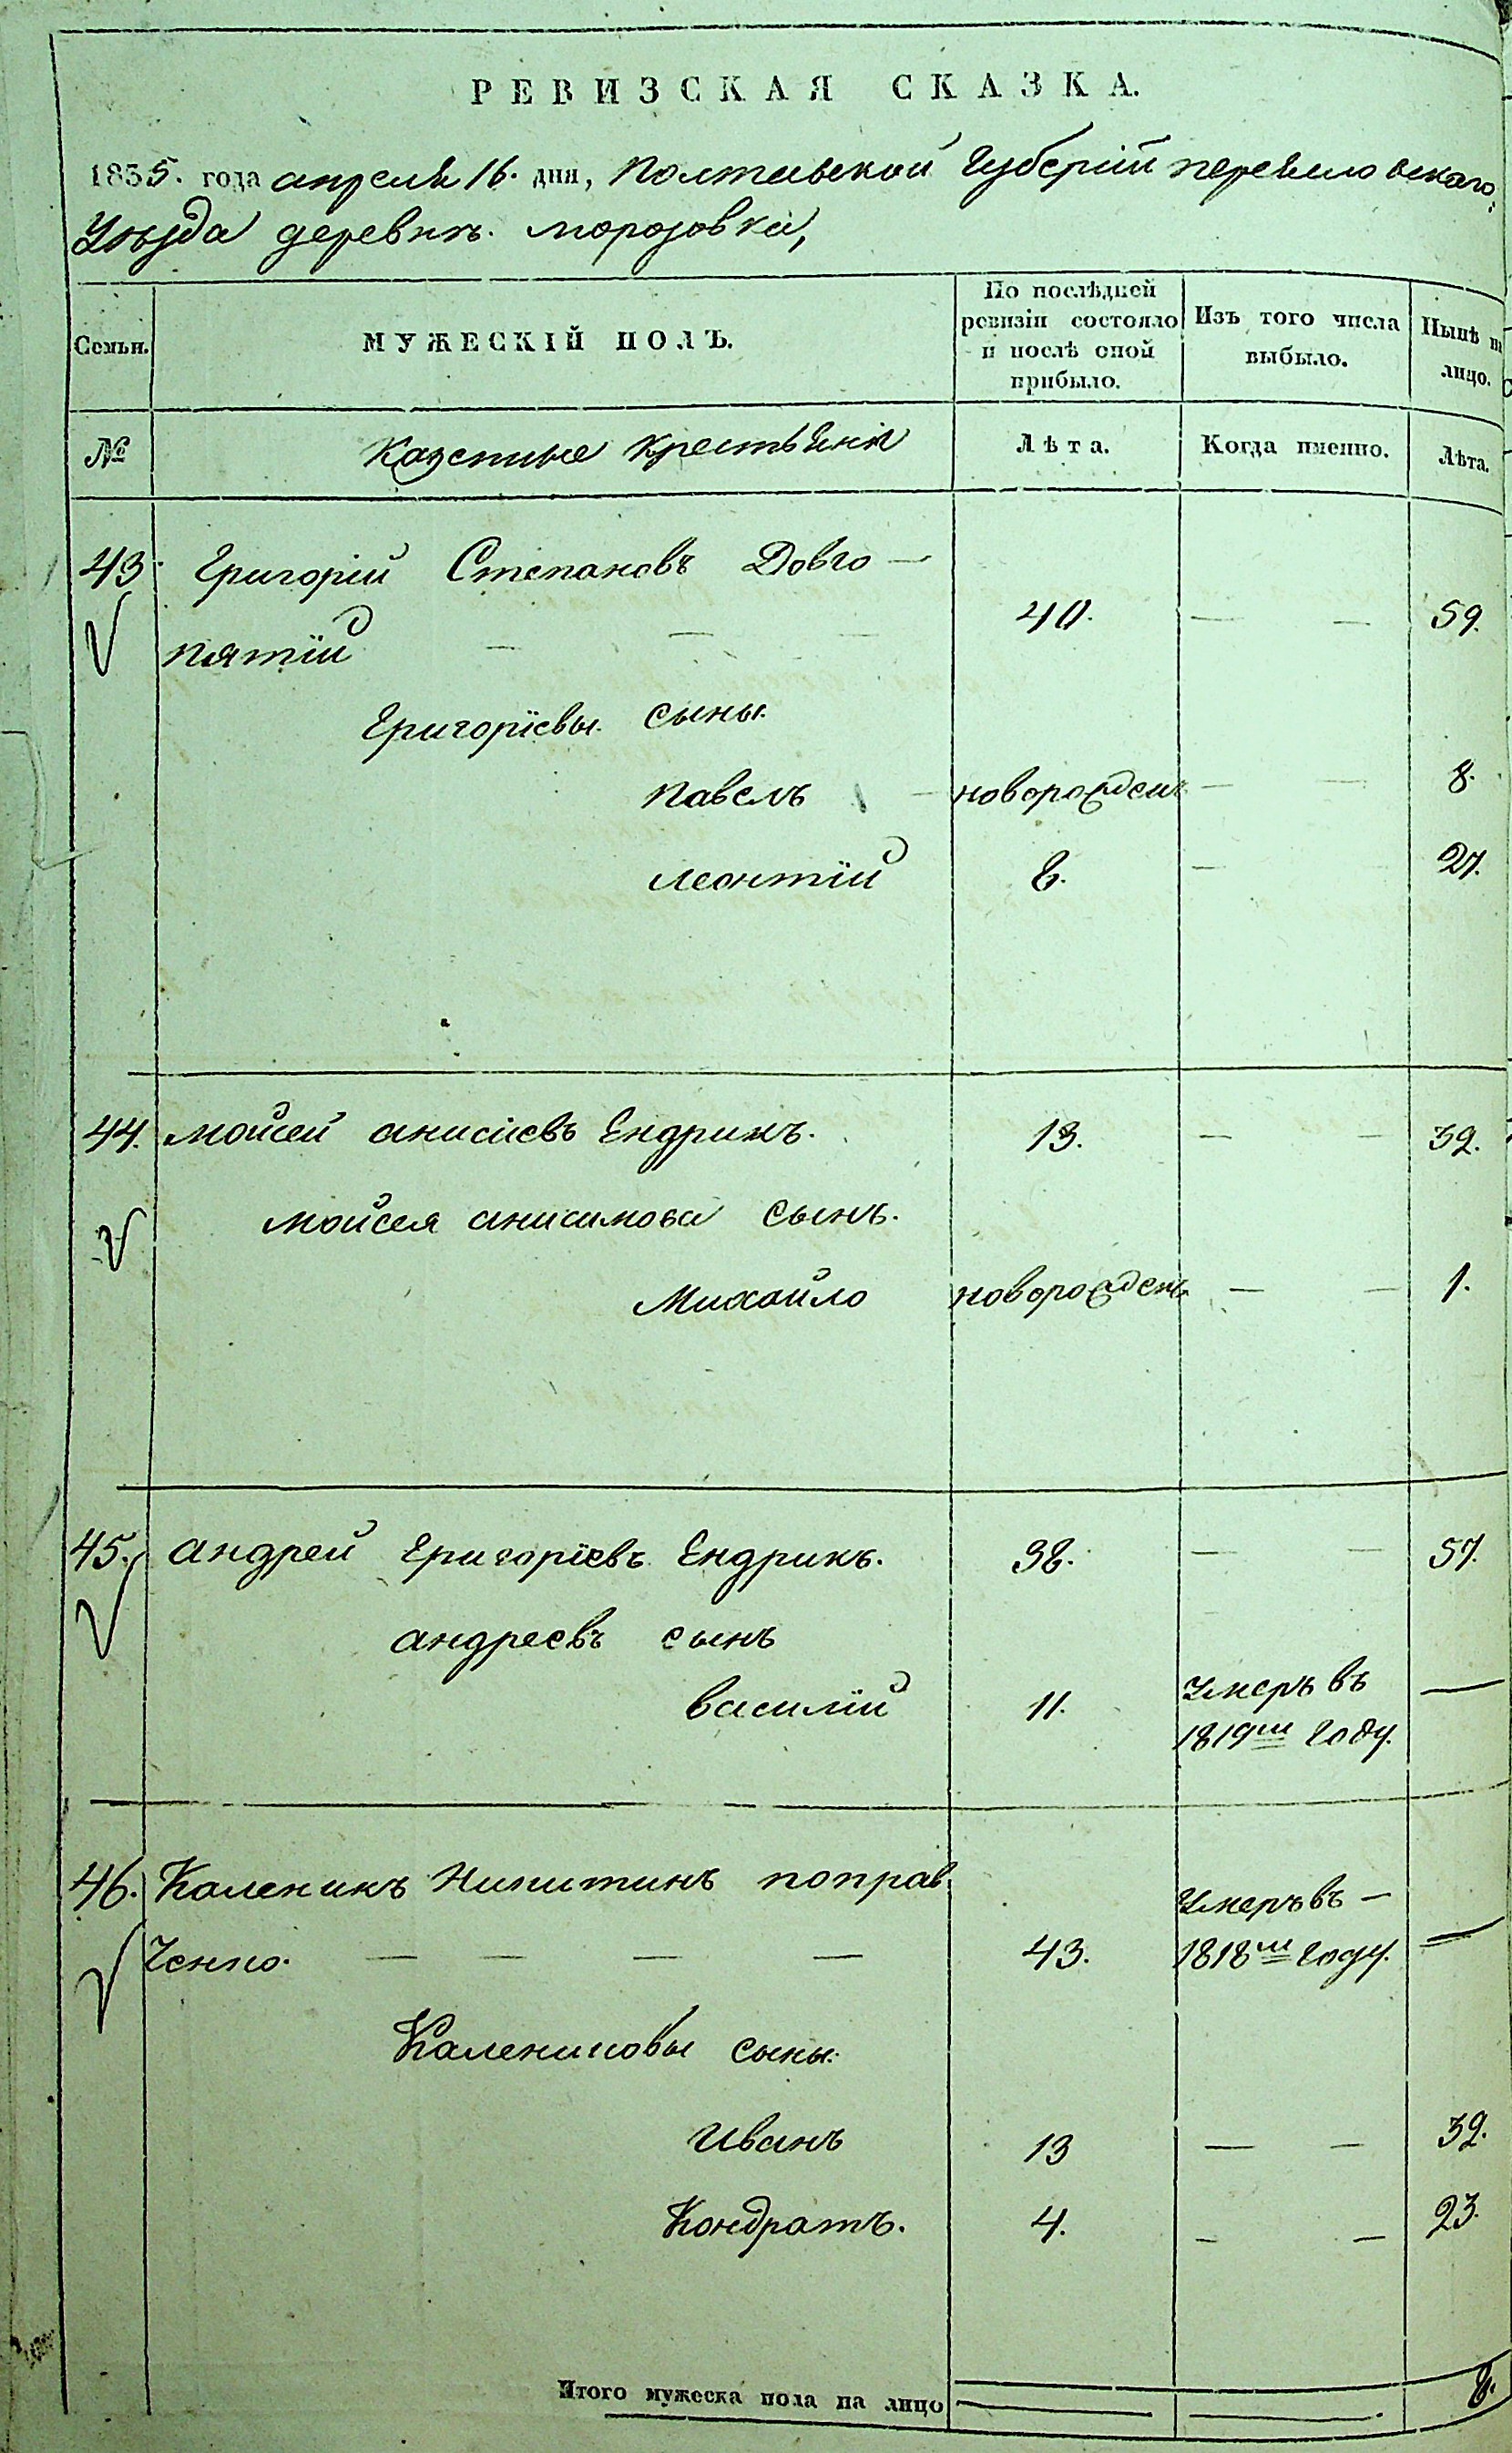 РЕВИЗСКАЯ СКАЗКА.
1835. года апреля 16. дня, Полтавской Губернїи переяславскаго
Уѣзда деревнѣ. морозовки,
Семьи.
МУЖЕСКІЙ ПОЛЪ.
По послѣдней
ревизіи состояло
и послѣ оной
прибыло.
Изъ того числа
выбыло.
Нынѣ на
лицо.
№
Казенные крестьяня
Лѣта.
Когда именно.
Лѣта.
43. Григорій Степановъ Довго—
пятїй — — — 40. — — 59.
Григорїевы. сыны.
павелъ — новорожденъ — — 8.
леонтїй 8. — 27.
44. мойсей анисїевъ Ендрикъ. 13. — — 32.
мойсея анисимова сынъ.
Михайло новорожденъ — — 1.
45. андрей Григорїевъ Ендрикъ. 38. — — 57.
андреевъ сынъ
василїй 11. Умеръ въ —
1819м году.
46. Каленикъ Никитинъ поправ
Умеръ въ —
ченко. — — — — 43. 1818м году. —
Калениковы сыны:
Иванъ 13 — — 32.
Кондратъ. 4. — — 23.
Итого мужеска пола на лицо 8.